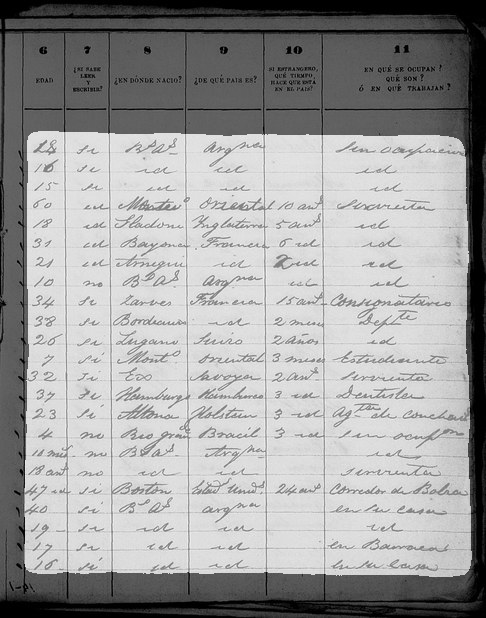 6 7 8 9 10 11
EDAD ¿SI SABE LEER Y ESCRIBIR? ¿EN DÓNDE NACIO? ¿DE QUÉ PAIS ES? SI ESTRANGERO, QUÉ TIEMPO HACE QUE ESTÁ EN EL PAIS? EN QUÉ SE OCUPAN? QUÉ SON? Ó EN QUÉ TRABAJAN?
18 si Bs As Argna sin ocupacion
16 si id id id
15 si id id id
60 id Montevo Oriental 10 ans Sirvienta
18 id Inglaterra 5 ans id
31 id Bayona Francia 6 id id
21 id id 2 id id
10 no Bs As Argna id id
34 si Francia 15 ans Consignatario
38 si Bordeaux id 2 meses Depte
26 si Lugano Suizo 2 años id
7 si Monto Oriental 3 meses Estudiante
32 si Savoya 2 ans Sirvienta
37 si Hamburgo Hamburgo 3 id Dentista
23 si Altona Holstein 3 id Agte de
4 no Rio gran Bracil 3 id sin ocupon
10 ms no Bs As Argna id
18 ans no id id sirvienta
47 id si Boston Estads Unids 24 ans Corredor de Bolsa
40 si Bs As argna en la casa
19 - si id id id
17 si id id en Barraca
16 - si id id en la casa